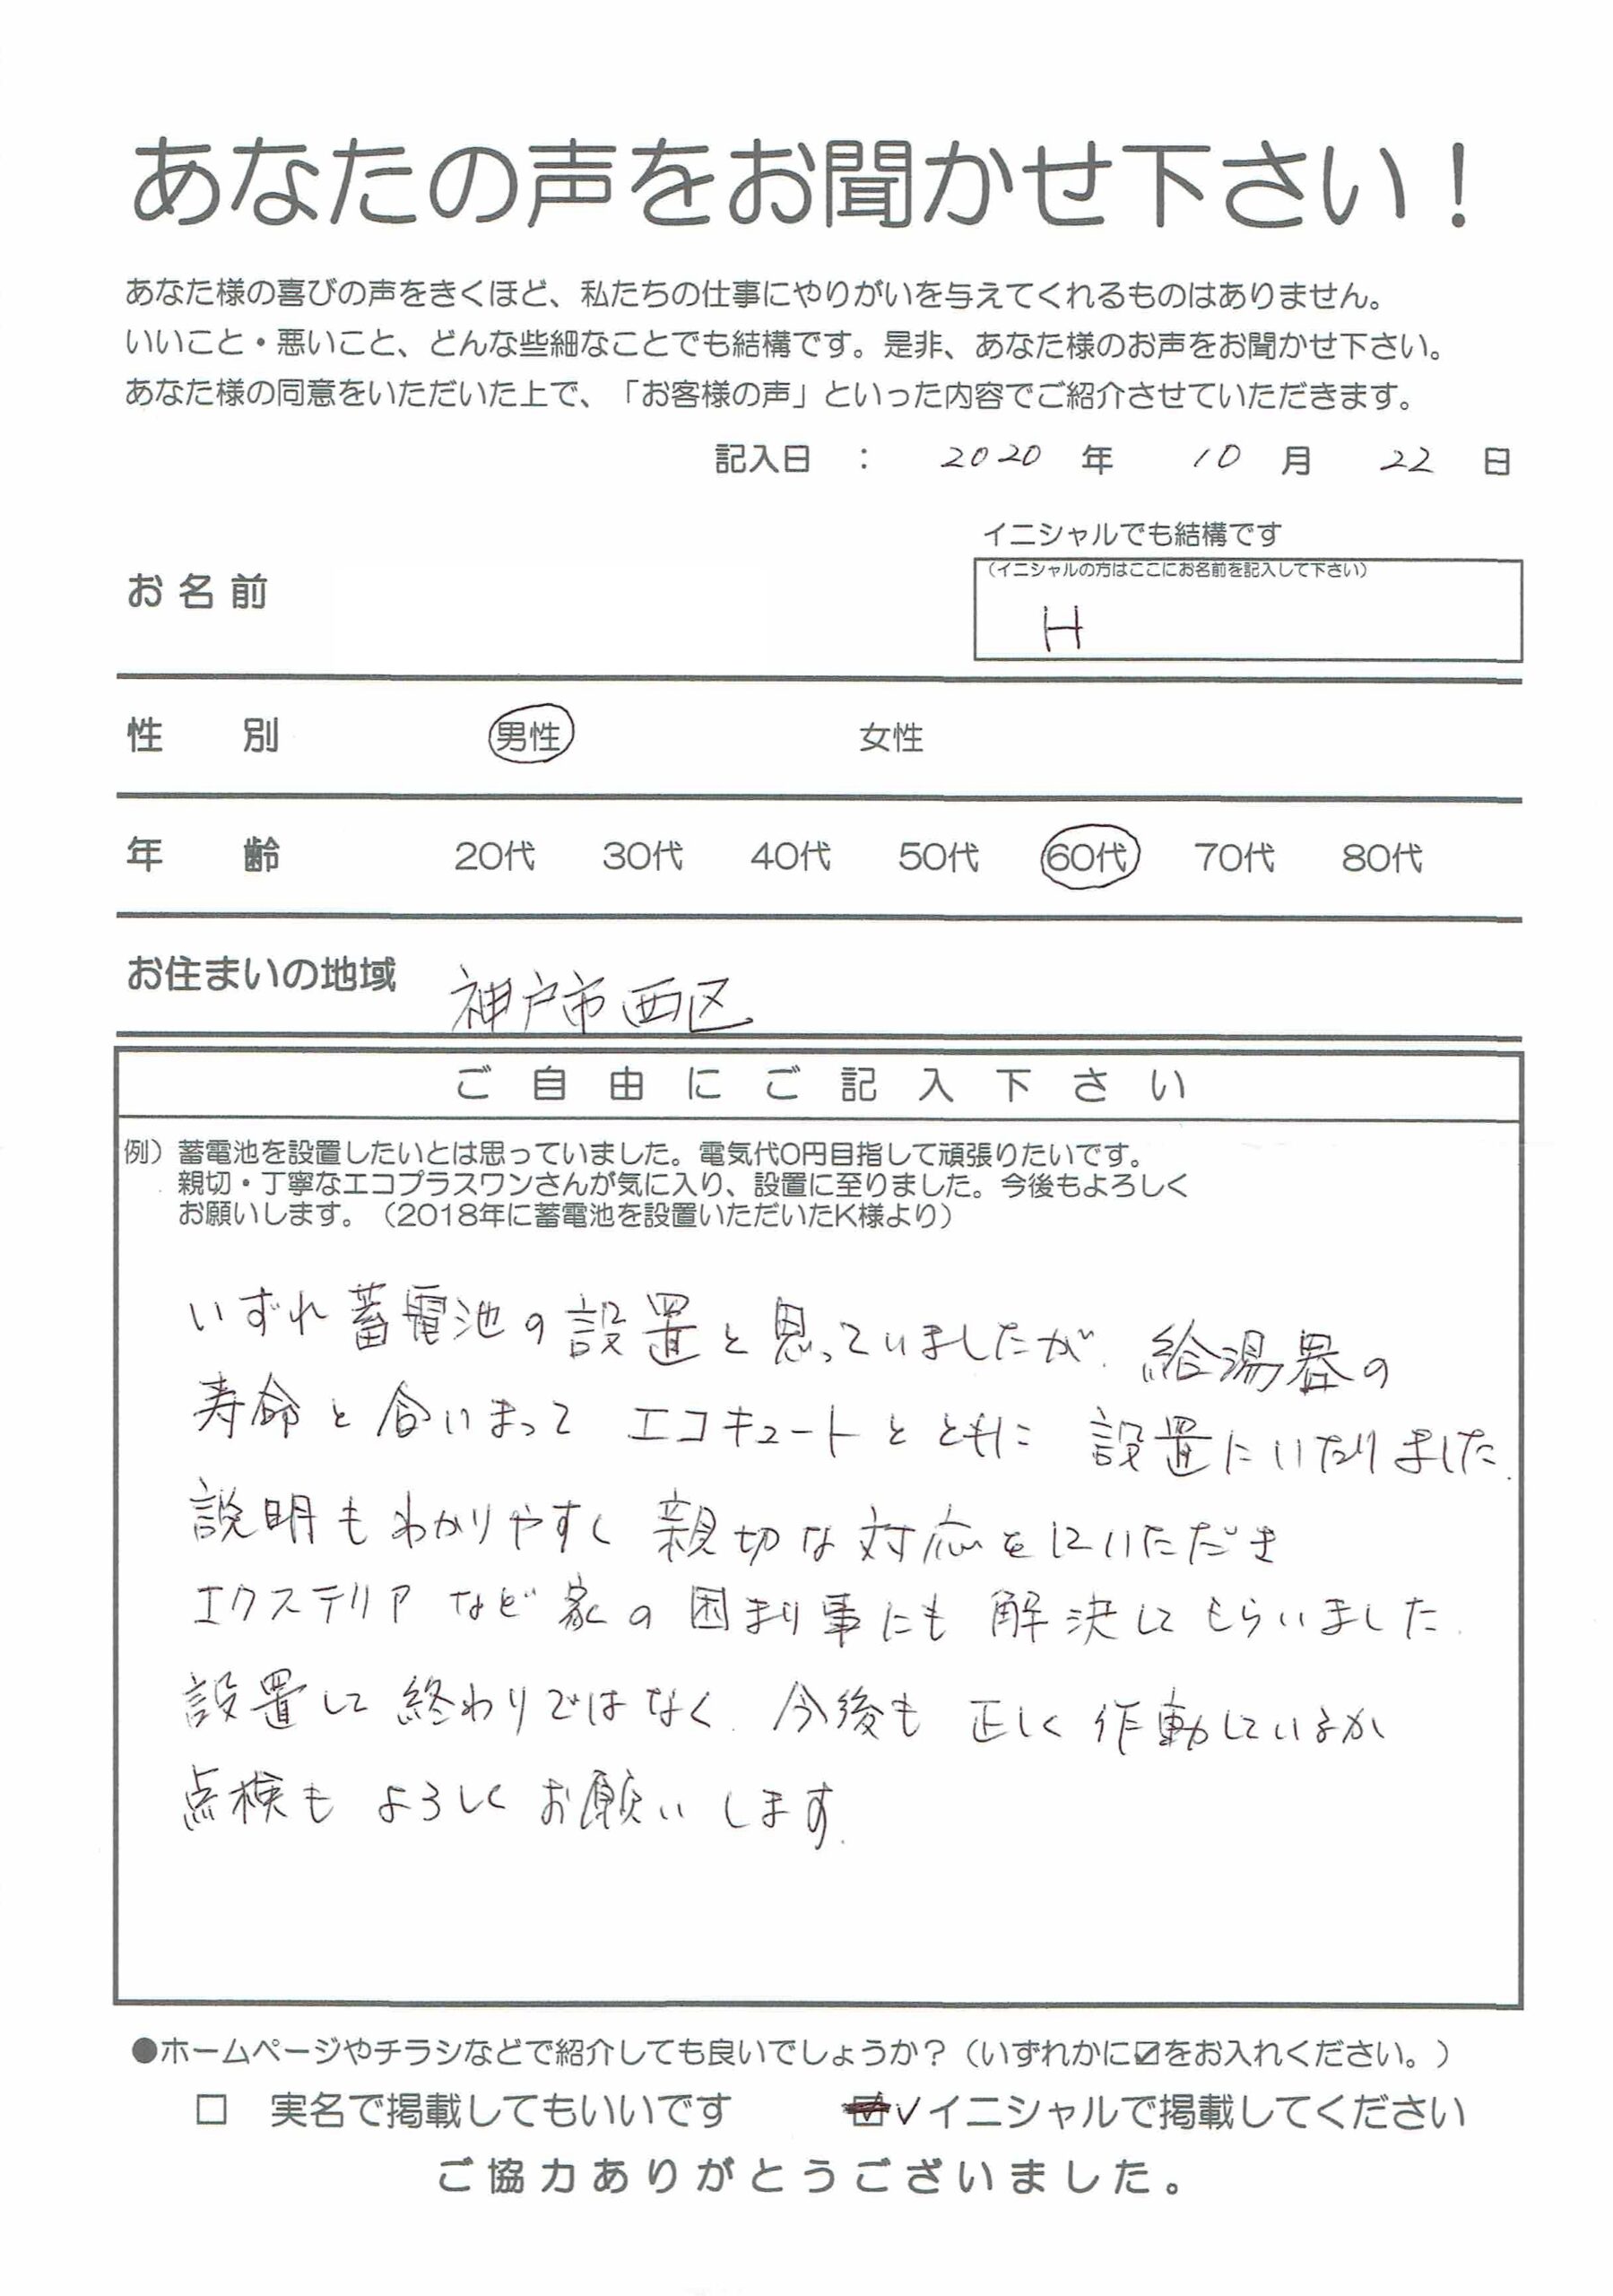 あなたの声をお聞かせ下さい！
あなた様の喜びの声をきくほど、私たちの仕事にやりがいを与えてくれるものはありません。
いいこと・悪いこと、どんな些細なことでも結構です。是非、あなた様のお声をお聞かせ下さい。
あなた様の同意をいただいた上で、「お客様の声」といった内容でご紹介させていただきます。
記入日 ： 2020 年 10 月 22 日
イニシャルでも結構です
お名前
（イニシャルの方はここにお名前を記入して下さい）
H
性 別 男性 女性
年 齢 20代 30代 40代 50代 60代 70代 80代
お住まいの地域 神戸市西区
ご自由にご記入下さい
例）蓄電池を設置したいとは思っていました。電気代0円目指して頑張りたいです。
親切・丁寧なエコプラスワンさんが気に入り、設置に至りました。今後もよろしく
お願いします。（2018年に蓄電池を設置いただいたK様より）
いずれ蓄電池の設置と思っていましたが、給湯器の
寿命と合いまって エコキュートとともに 設置にいたりました.
説明もわかりやすく 親切な対応をしていただき
エクステリアなど家の困まり事にも 解決してもらいました.
設置して終わりではなく、今後も 正しく作動しているか
点検も よろしくお願いします.
●ホームページやチラシなどで紹介しても良いでしょうか？（いずれかに☑をお入れください。）
□ 実名で掲載してもいいです ☑✓イニシャルで掲載してください
ご協力ありがとうございました。